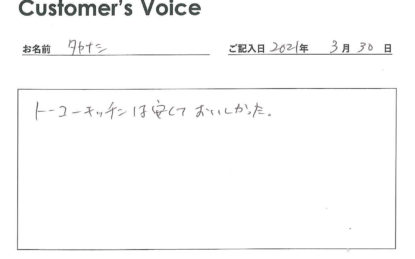 Customer's Voice
お名前 タカナシ ご記入日 2021年 3月30日
トーコーキッチンは安くておいしかった。